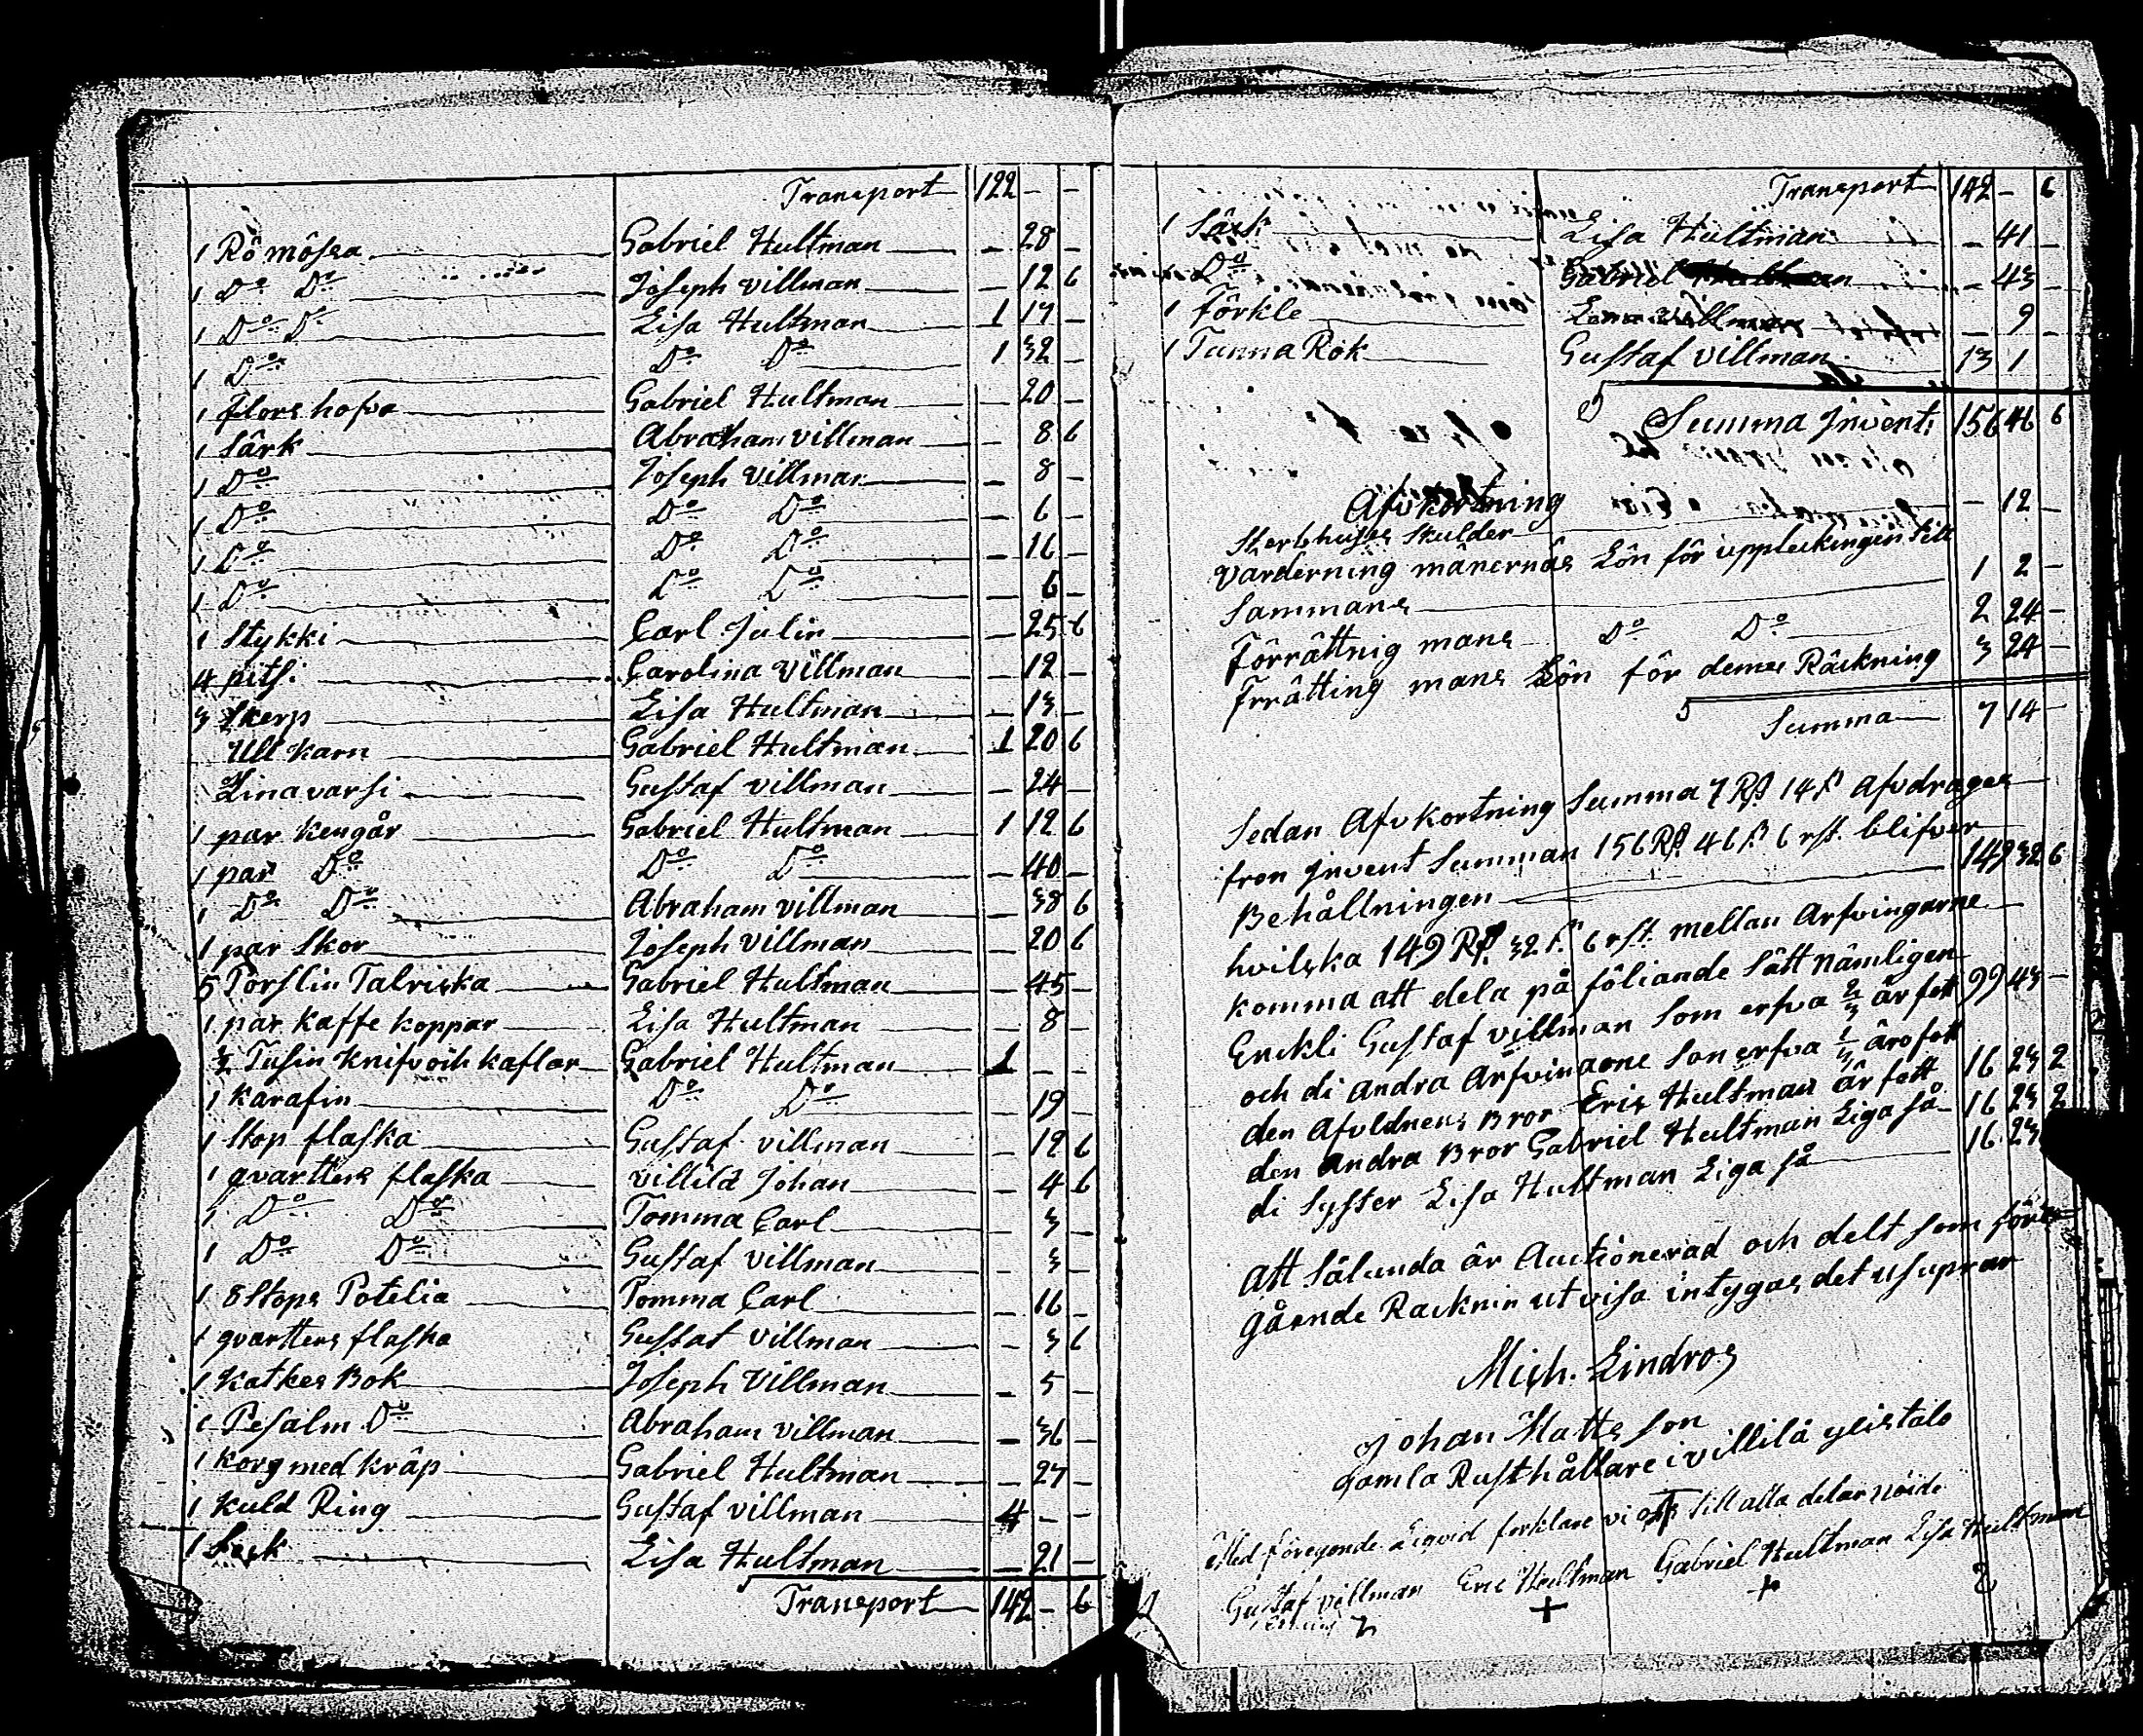 Transport 122 - -
1 Rö mössa Gabriel Hultman - 28 -
1 Do Do Joseph villman - 12 6
1 Do Do Lisa Hultman 1 17 -
1 Do Do Do 1 32 -
1 flors hafva Gabriel Hultman - 20 -
1 Särk Abraham villman - 8 6
1 Do Joseph villman - 8 -
1 Do Do Do - 6 -
1 Do Do Do - 16 -
1 Do Do Do - 6 -
1 Stykki Carl Julin - 25 6
4 pitsi Carolina villman - 12 -
3 Skerp Lisa Hultman - 13 -
Ull karn Gabriel Hultman 1 20 6
Lina varsi Gustaf villman - 24 -
1 par kengär Gabriel Hultman 1 12 6
1 par Do Do Do - 40 -
1 Do Do Abraham villman - 38 6
1 par Skor Joseph villman - 20 6
5 Porslin Talriska Gabriel Hultman - 45 -
1 par kaffe koppar Lisa Hultman - 8 -
½ Tusin knifv och kaflar Gabriel Hultman 1 - -
1 karafin Do Do - 19 -
1 Stop flaska Gustaf villman - 12 6
1 qvartters flaska villilä Johan - 4 6
1 Do Do Tomma Carl - 3 -
1 Do Do Gustaf villman - 3 -
1 8 Stops Potelia Tomma Carl - 16 -
1 qvartters flaska Gustaf villman - 3 6
1 katkes Bok Joseph villman - 5 -
1 Pesalm Do Abraham villman - 36 -
1 korg med kräp Gabriel Hultman - 27 -
1 kuld Ring Gustaf villman 4 - -
1 Lisa Hultman - 21 -
Transport 142 - 6
Transport 142 - 6
1 Särk Lisa Hultman - 41 -
Do Gabriel - 43 -
1 förkle villman - 9 -
1 Tunna Rok Gustaf villman 13 1
Summa Invent: 156 46 6
Afvkortning
Sterbhuses Skulder - 12 -
värderning mänernäs Lön för uppteckingen till
Sammans 1 2 -
Förrättnig mans Do Do 2 24 -
Frrätting mans Lön för demes Räckning 3 24 -
Summa 7 14 -
Sedan Afvkortning Summa 7 R 14 ß Afvdrages
fron Invent Summan 156 R 46 ß 6 rst. blifver
Behållningen 149 32 6
hvilska 149 R 32 ß 6 rst. mellan Arfvingarne
komma att dela på föliande Sätt nämligen
Enckli Gustaf villman Som erfva ⅔ är fett 99 43 -
och di andra Arfvingaone Som erfva ⅓ äro fett
den Afvldnens Bror Eric Hultman är fett 16 23 2
den andra Bror Gabriel Hultman Liga så 16 23 2
di Syster Lisa Hultman Liga så 16 23
Att Sålunda är Auctionerad och delt som före=
gårnde Racknin utvisa intygas det usuprar
Mich. Lindros
Johan Matts son
gamla Rusthållare i villilä ylistalo
Med föregende Liqvid forklare vi till alla delar nöide
Gustaf villman Eric Hultman Gabriel Hultman Lisa Hultman
+ +